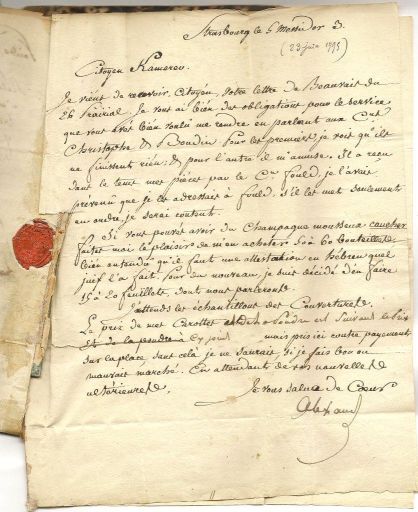 Strasbourg le 5 Messidor 3.
(23 juin 1795)
Citoyen Kamerer.
Je viens de recevoir, Citoyen, Votre lettre de Beauvais du
26 Prairial Je vous ai bien des obligations pour le service
que vous avez bien voulu me rendre en parlant aux Cns
Christophe & Boudin. Pour les premiers je vois qu'ils
ne finissent rien; & pour l'autre il m'amuse. Il a reçu
dans le tems mes pièces par le Cn fould, je l'avais
prevenu que je les adressais à fould, s'il les met seulement
en ordre, je serai content.
Si vous pouvez avoir du Champagne mousseux
faites moi le plaisir de m'en acheter 50 à 60 bouteilles
bien entendu qu'il faut une attestation en hébreu quel
juif l'a fait. Pour du nouveau, je suis décidé d'en faire
15 à 20 feuillettes, dont nous parlerons.
J'attends les échantillons des Couvertures.
Le prix de mes est suivant le prix
et de la mais pris ici contre payement
sur la place sans cela je ne saurais si je fais bon ou
mauvais marché. En attendant de vos nouvelles
ultérieures
Je vous salue de Coeur